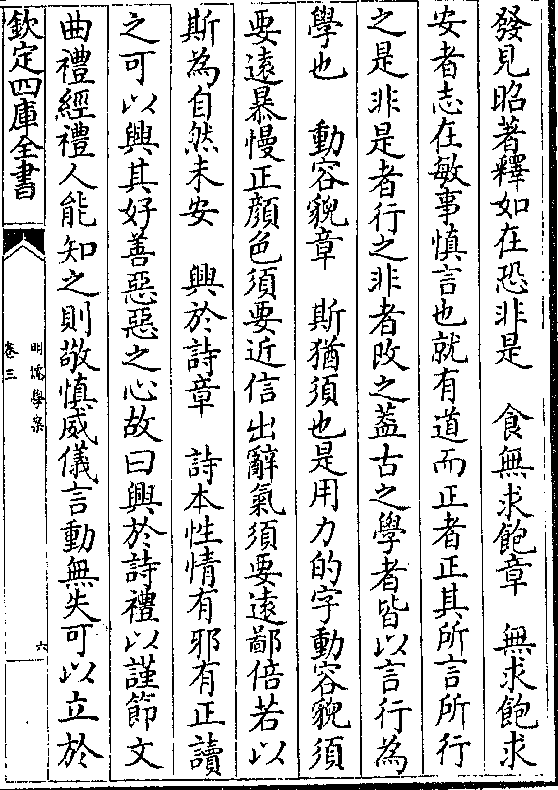 發見昭著釋如在恐非是　食無求飽章　無求飽求
安者志在敏事慎言也就有道而正者正其所言所行
之是非是者行之非者改之蓋古之學者皆以言行為
學也　動容貌章　斯猶須也是用力的字動容貌須
要逺暴慢正顔色須要近信出辭氣須要逺鄙倍若以
斯為自然未安　興於詩章　詩本性情有邪有正讀
之可以興其好善惡惡之心故曰興於詩禮以謹節文
曲禮經禮人能知之則敬慎威儀言動無失可以立於
欽定四庫全書
明儒學案
卷三
六